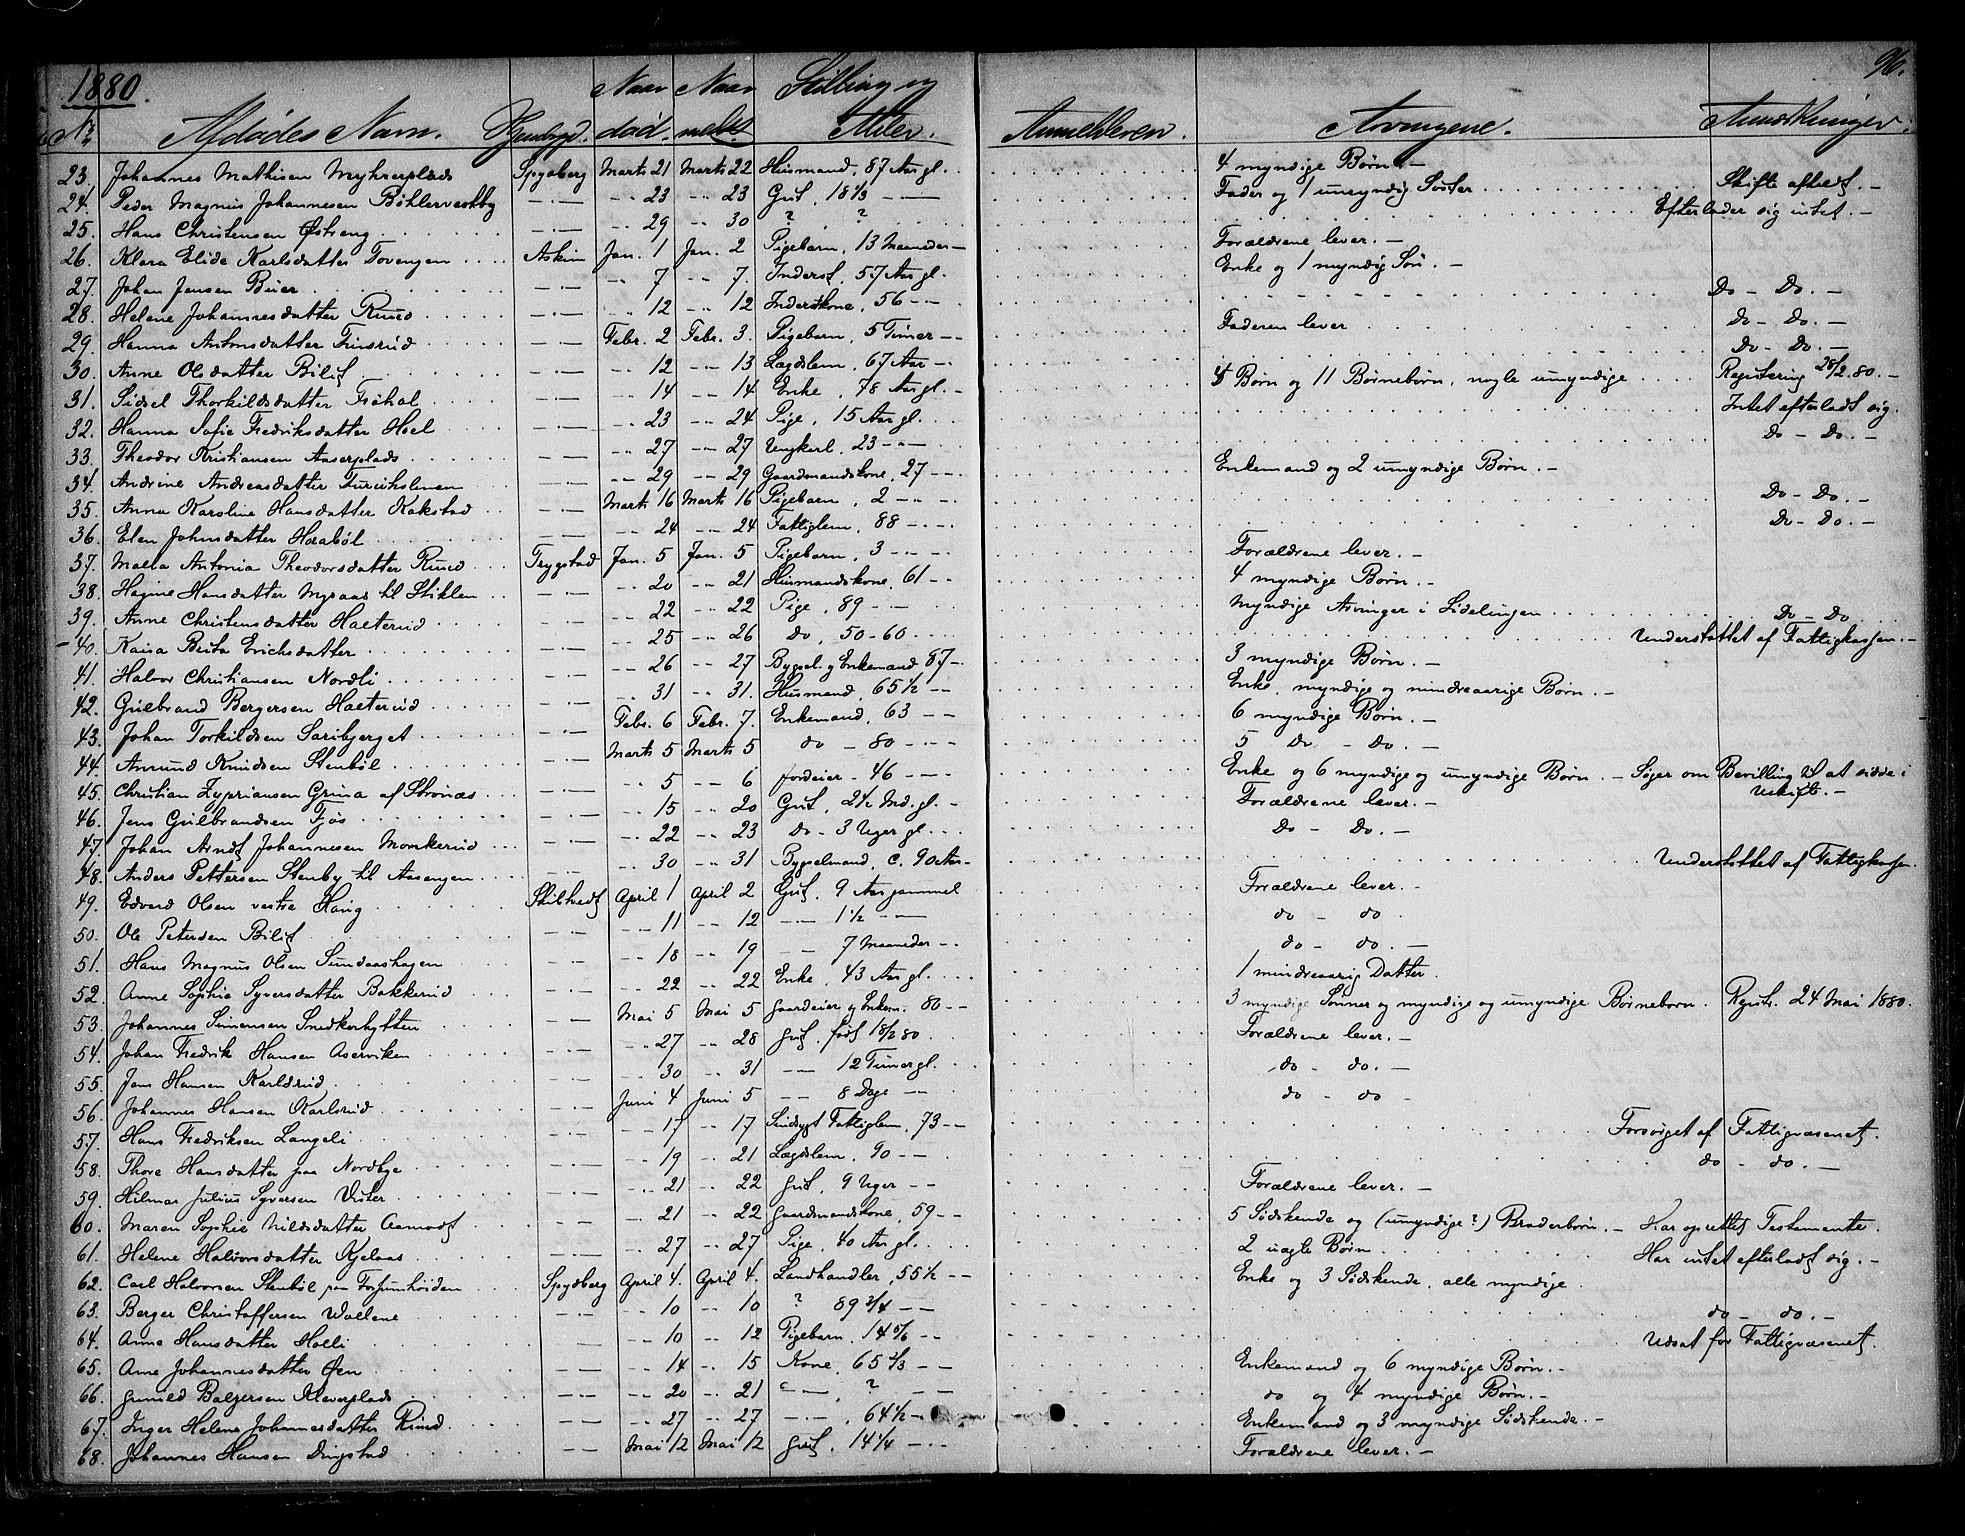 1880. 96.
No Afdødes Navn. Hjembygd. Naar død. Naar meldt. Stilling og Alder. Anmelderen. Arvingene. Anmærkninger.
23. Johannes Mathisen Myhrerplads Spydberg Marts 21 Marts 22 Husmand, 87 Aar gl. 4 myndige Børn. —
24. Peder Magnus Johannesen Bøhlervestby —·— -·- 23 -·- 23 Gut, 18 1/3 —·— Fader og 1 umyndig Søster Skifte afholdt. —
25. Hans Christensen Østreng —·— -·- 29 -·- 30 ? ? Efterlader sig intet. —
26. Klara Elide Karlsdatter Tovengen Askim Jan. 1 Jan. 2 Pigebarn, 13 Maaneder — Forældrene lever. —
27. Johan Jensen Buer —·— -·- 7 -·- 7. Inderst, 57 Aar gl. Enke og 1 myndig Søn. —
28. Helene Johannesdatter Ruud —·— -·- 12 -·- 12 Inderstkone, 56 -·- Do — Do. —
29. Hanna Antonsdatter Finsrud —·— Febr. 2 Febr. 3. Pigebarn, 5 Timer — Faderen lever Do — Do. —
30. Anne Olsdatter Bilit —·— -·- 12 -·- 13 Lægdslem, 67 Aar — Do — Do. —
31. Sidsel Thorkildsdatter Frøhol —·— -·- 14 -·- 14 Enke, 78 Aar gl. 4 Børn og 11 Børnebørn, nogle umyndige Registering 28/2. 80. —
32. Hanna Sofie Fredriksdatter Hoel —·— -·- 23 -·- 24 Pige, 15 Aar gl. Intet efterladt sig.
33. Theodor Kristiansen Aaserplads —·— -·- 27 -·- 27 Ungkarl, 23 -·- Do — Do. —
34. Andrine Andreasdatter —·— -·- 29 -·- 29 Gaardmandskone, 27 — Enkemand og 2 umyndige Børn. —
35. Anna Karoline Hansdatter Kakstad —·— Marts 16 Marts 16 Pigebarn, 2 -·- Do — Do. —
36. Elen Johnsdatter Haraböl —·— -·- 24 -·- 24 Fattiglem, 88 -·- Do — Do. —
37. Maela Antonia Theodorsdatter Ruud Trygstad Jan. 5 Jan. 5 Pigebarn, 3 -·- Forældrene lever. —
38. Hagine Hansdatter Mysaas til Stiklen —·— -·- 20 -·- 21 Husmandskone, 61 — 4 myndige Børn. —
39. Anne Christensdatter Haeterud —·— -·- 22 -·- 22 Pige, 89 — Myndige Arvinger i Sidelinjen Do — Do
40. Kaisa Brita Erichsdatter —·— -·- 25 -·- 26 do, 50-60 Understøttet af Fattigkassen. —
41. Halvor Christiansen Nordli —·— -·- 26 -·- 27 Bygsel. og Enkemand 87 — 3 myndige Børn. —
42. Gulbrand Bergersen Haeterud —·— -·- 31 -·- 31. Husmand, 65 1/2 — Enke, myndige og mindreaarige Børn. —
43. Johan Torkildsen Saribjerget —·— Febr. 6 Febr. 7. Enkemand, 63 — 6 myndige Børn. —
44. Amund Knudsen Stenbøl —·— Marts 5 Marts 5 do — 80 -·- 5 Do — Do. —
45. Christian Zypriansen Grina af Strønæs —·— -·- 5 -·- 6 Jordeier — 46 -·- Enke og 6 myndige og umyndige Børn. — Søger om Bevilling til at sidde i Uskifte. —
46. Jens Gulbrandsen Fjøs —·— -·- 15 -·- 20 Gut, 2 1/2 Md. gl. — Forældrene lever. —
47. Johan Arndt Johannesen Monkerud —·— -·- 22 -·- 23 do — 3 Uger gl. Do — Do. —
48. Anders Pettersen Stenby til Aasengen —·— -·- 30 -·- 31 Bygselmand, c. 90 Aar — Understøttet af Fattigkassen
49. Edvard Olsen vestre Haug Skibtvedt April 1 April 2 Gut, 9 Aar gammel Forældrene lever. —
50. Ole Petersen Bilit —·— -·- 11 -·- 12 —·— 1 1/2 —·— do — do.
51. Hans Magnus Olsen Sundaashagen —·— -·- 18 -·- 19 — 7 Maaneder — do — do. —
52. Anne Sophie Syversdatter Bakkerud —·— -·- 22 -·- 22 Enke, 43 Aar gl. 1 mindreaarig Datter.
53. Johannes Simensen Snedkerhytten —·— Mai 5 Mai 5 Gaardeier og Enkem. 80 — 3 myndige Sønner og myndige og umyndige Børnebørn. Registr. 24 Mai 1880.
54. Johan Fredrik Hansen Aserviken —·— -·- 27 -·- 28 Gut, født 18/2 80 Forældrene lever. —
55. Jens Hansen Karlsrud —·— -·- 30 -·- 31 — 12 Timer gl. do — do. —
56. Johannes Hansen Karlsrud —·— Juni 4 Juni 5 — 8 Dage — do — do —
57. Hans Fredriksen Langeli —·— -·- 17 -·- 17 Sindsygt Fattiglem, 73 — Forsørget af Fattigvæsenet.
58. Thore Hansdatter paa Nordbye —·— -·- 19 -·- 21 Lægdslem, 90 — do — do. —
59. Hilmar Julius Syversen Vister —·— -·- 21 -·- 22 Gut, 9 Uger — Forældrene lever. —
60. Maren Sophie Nilsdatter Aamodt —·— -·- 21 -·- 22 Gaardmandskone, 59 — 5 Sødskende og (umyndige?) Broderbørn. — Har oprettet Testamente.
61. Helene Halvorsdatter Kjelaas —·— -·- 27 -·- 27 Pige, 40 Aar gl. 2 uægte Børn Har intet efterladt sig. —
62. Carl Halvorsen Stenbøl paa Spydberg April 4. April 4. Landhandler, 55 1/2 — Enke og 3 Sødskende, alle myndige
63. Berger Christoffersen Wollene —·— -·- 10 -·- 10 ? 89 3/4 — do — do. —
64. Anna Hansdatter Holli —·— -·- 10 -·- 12 Pigebarn, 14 5/6 — Udsat for Fattigvæsenet.
65. Ane Johannesdatter Øen —·— -·- 14 -·- 15 Kone, 65 2/3 — Enkemand og 6 myndige Børn. —
66. Gunild Balzersen Kleverplads —·— -·- 20 -·- 21 — ? — do og 4 myndige Børn. —
67. Inger Helene Johannesdatter Ruud —·— -·- 27 -·- 27 —·—, 64 1/2 — Enkemand og 3 myndige Sødskende. —
68. Johannes Hansen Dingstad —·— Mai 12 Mai 12 Gut, 14 1/4 — Forældrene lever. —